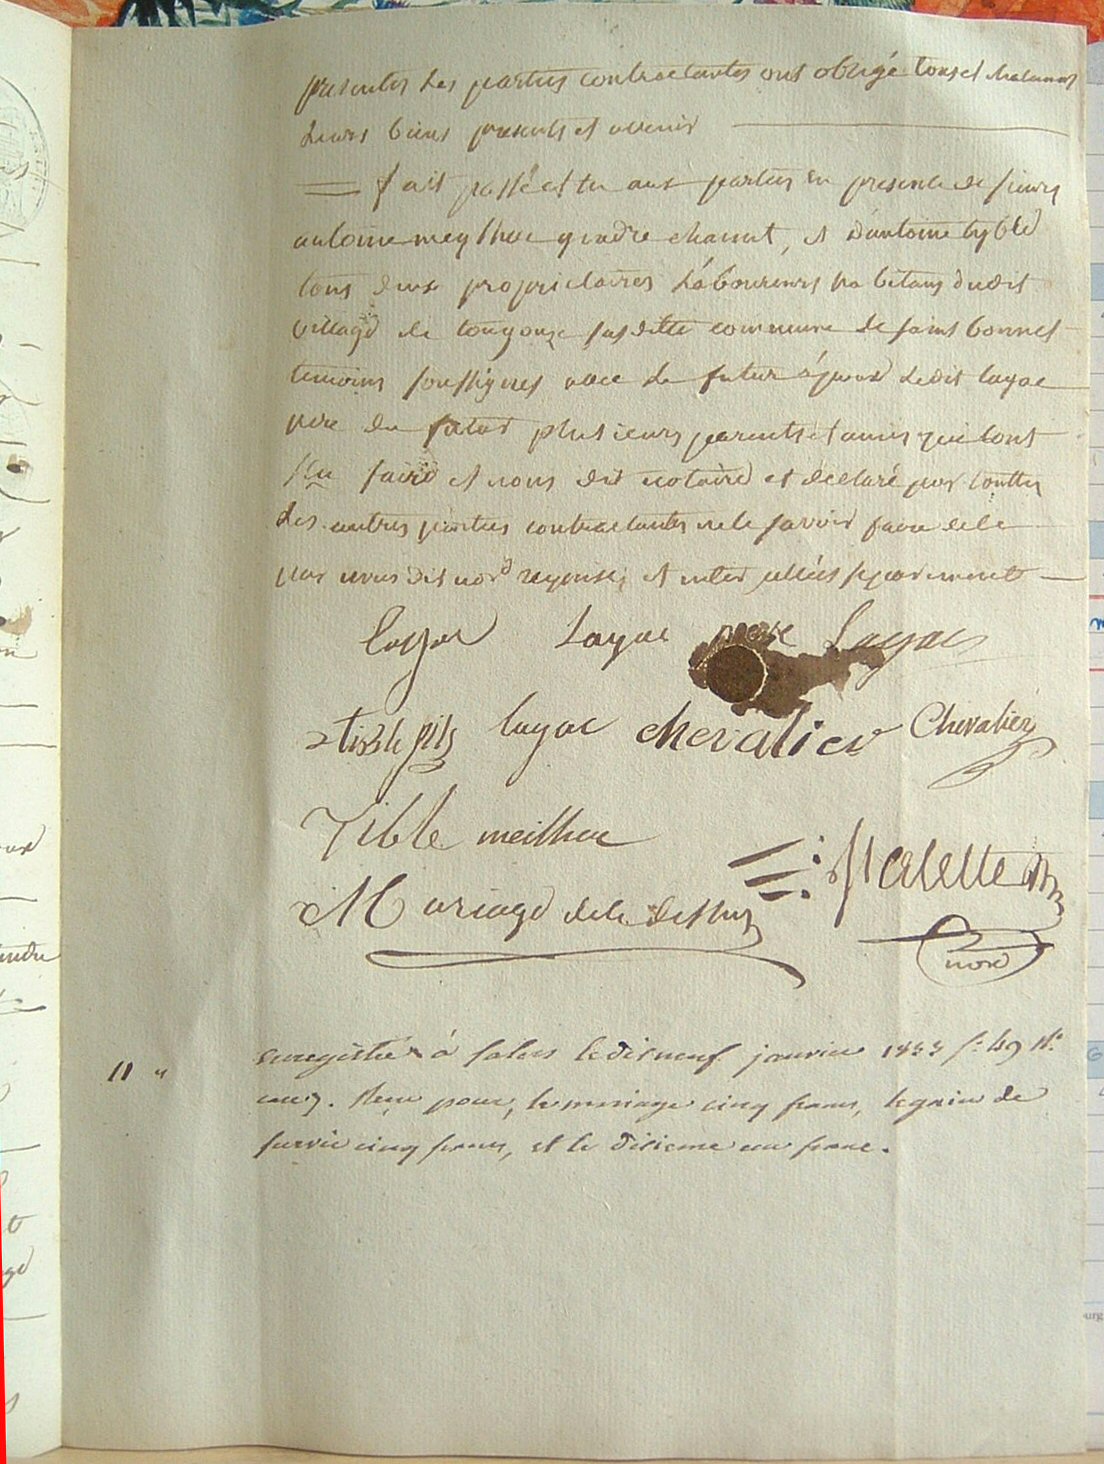 presentes Les parties contractantes ont obligé tous et chacuns
Leurs biens presents et avenir
fait passé et lu aux parties en presence de sieurs
antoine meylhac gendre chanut, et d'antoine tyble
tous deux proprietaires Laboureurs habitans dudit
village de susditte commune de saint bonnet
temoins soussignes avec Le futur époux Ledit layac
pere du futur plusieurs parents et amis qui tont
sçu faire et nous dit notaire et declaré par touttes
Les autres parties contractantes ne le savoir faire de le
par nous dit not re requises, et interpellées separement
layac Layac père Layac
tible fils layac chevalier Chevalier
Tible meilhac
Valette
Mariage de le dessus
not re
11 "
enregistré à salers le dixneuf janvier 1833 f.º 49 R.º
case 7. Reçu pour, le mariage cinq francs, le gain de
survie cinq francs, et le dixieme un franc.